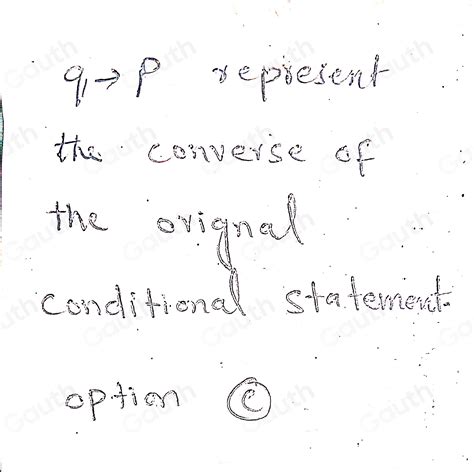 q → p represent
the converse of
the orignal
conditional statement.
option Ⓒ